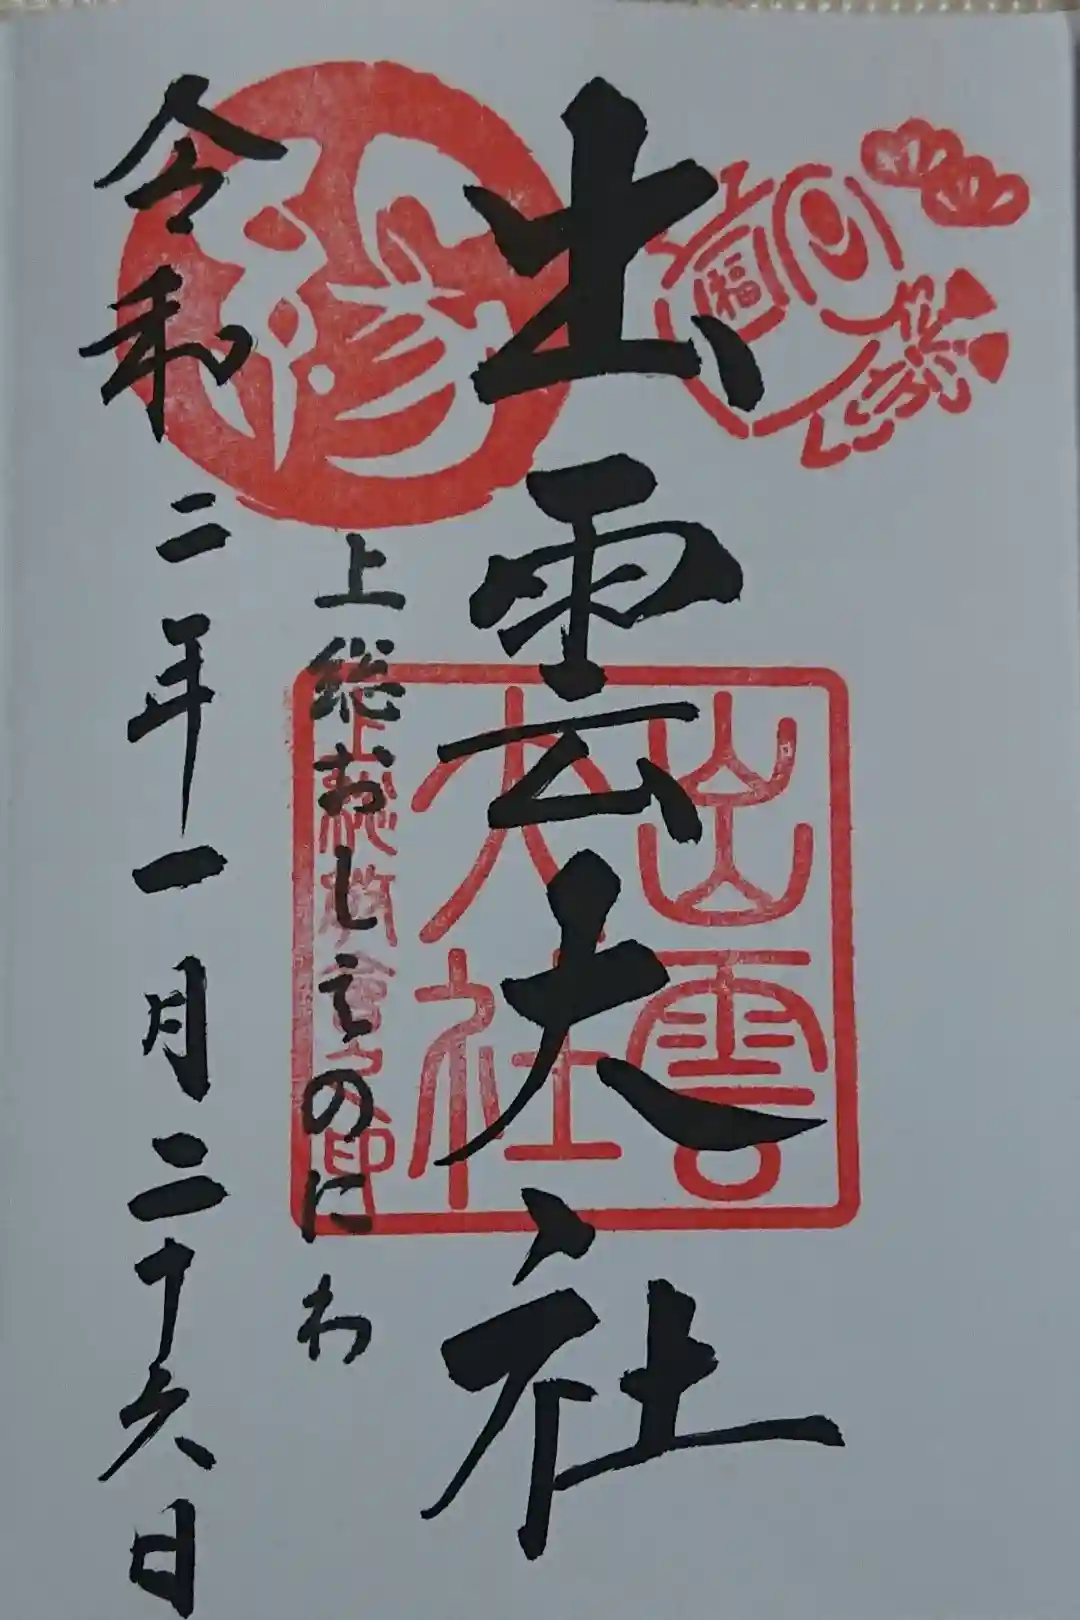 出雲大社
上総おしえのにわ
令和二年一月二十六日
縁
福
出雲
大社
上総教会之印